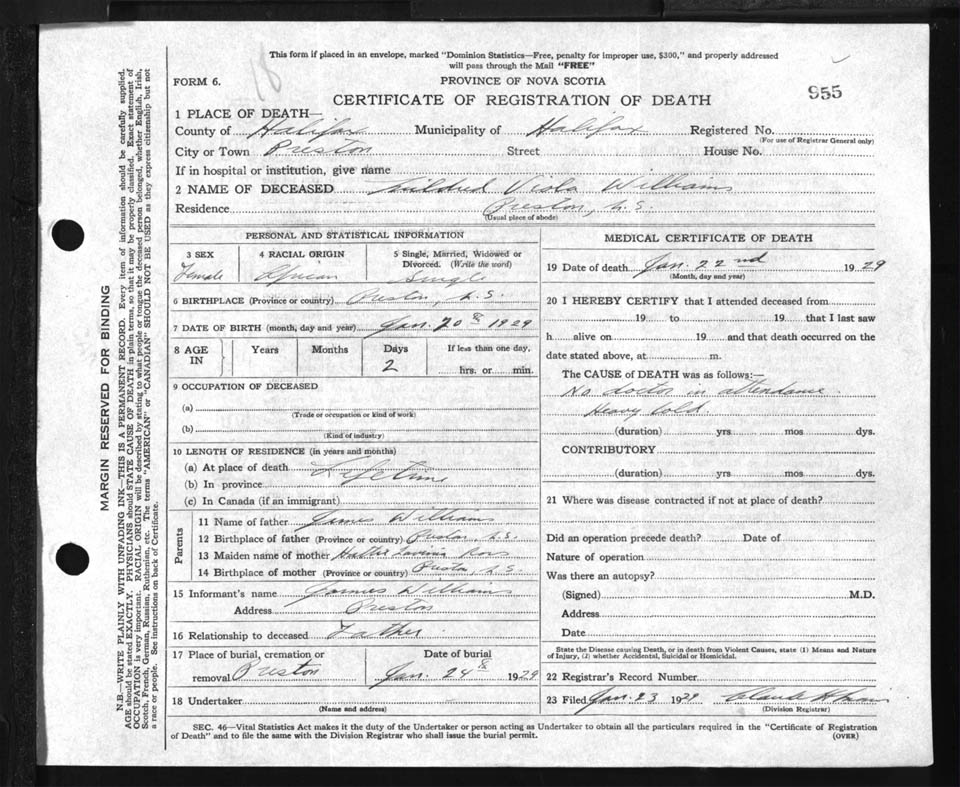 This form if placed in an envelope, marked "Dominion Statistics—Free, penalty for improper use, $300," and properly addressed
will pass through the Mail "FREE"
18
FORM 6.
PROVINCE OF NOVA SCOTIA
955
CERTIFICATE OF REGISTRATION OF DEATH
1 PLACE OF DEATH—
County of Halifax Municipality of Halifax Registered No.
(For use of Registrar General only)
City or Town Preston Street House No.
If in hospital or institution, give name
2 NAME OF DECEASED Mildred Viola Williams
Residence Preston, N.S.
(Usual place of abode)
PERSONAL AND STATISTICAL INFORMATION
3 SEX
Female
4 RACIAL ORIGIN
African
5 Single, Married, Widowed or
Divorced. (Write the word)
Single
6 BIRTHPLACE (Province or country) Preston, N.S.
7 DATE OF BIRTH (month, day and year) Jan. 20th 1929
8 AGE
IN
Years
Months
Days
2
If less than one day,
hrs. or min.
9 OCCUPATION OF DECEASED
(a)
(Trade or occupation or kind of work)
(b)
(Kind of industry)
10 LENGTH OF RESIDENCE (in years and months)
(a) At place of death Lifetime
(b) In province
(c) In Canada (if an immigrant)
Parents
11 Name of father James Williams
12 Birthplace of father (Province or country) Preston, N.S.
13 Maiden name of mother Hattie Lavinia Ross
14 Birthplace of mother (Province or country) Preston, N.S.
15 Informant's name James Williams
Address Preston
16 Relationship to deceased Father
17 Place of burial, cremation or
removal Preston
Date of burial
Jan. 24th 1929
18 Undertaker
(Name and address)
MEDICAL CERTIFICATE OF DEATH
19 Date of death Jan. 22nd 1929
(Month, day and year)
20 I HEREBY CERTIFY that I attended deceased from
19 to 19 that I last saw
h alive on 19 and that death occurred on the
date stated above, at m.
The CAUSE of DEATH was as follows:—
No doctor in attendance
Heavy Cold.
(duration) yrs mos dys.
CONTRIBUTORY
(duration) yrs mos dys.
21 Where was disease contracted if not at place of death?
Did an operation precede death? Date of
Nature of operation
Was there an autopsy?
(Signed) M.D.
Address
Date
State the Disease causing Death, or in death from Violent Causes, state (1) Means and Nature
of Injury, (2) whether Accidental, Suicidal or Homicidal.
22 Registrar's Record Number
23 Filed Jan. 23 1929 Claude
(Division Registrar)
SEC. 46—Vital Statistics Act makes it the duty of the Undertaker or person acting as Undertaker to obtain all the particulars required in the "Certificate of Registration
of Death" and to file the same with the Division Registrar who shall issue the burial permit.
(OVER)
MARGIN RESERVED FOR BINDING
N.B.—WRITE PLAINLY WITH UNFADING INK—THIS IS A PERMANENT RECORD. Every item of information should be carefully supplied.
AGE should be stated EXACTLY. PHYSICIANS should STATE CAUSE OF DEATH in plain terms, so that it may be properly classified. Exact statement of
OCCUPATION is very important. RACIAL ORIGIN will be described by stating to what people or tongue the deceased person belonged, whether English, Irish,
Scotch, French, German, Russian, Ruthenian, etc. The terms "AMERICAN" or "CANADIAN" SHOULD NOT BE USED as they express citizenship but not
a race or people. See instructions on back of Certificate.